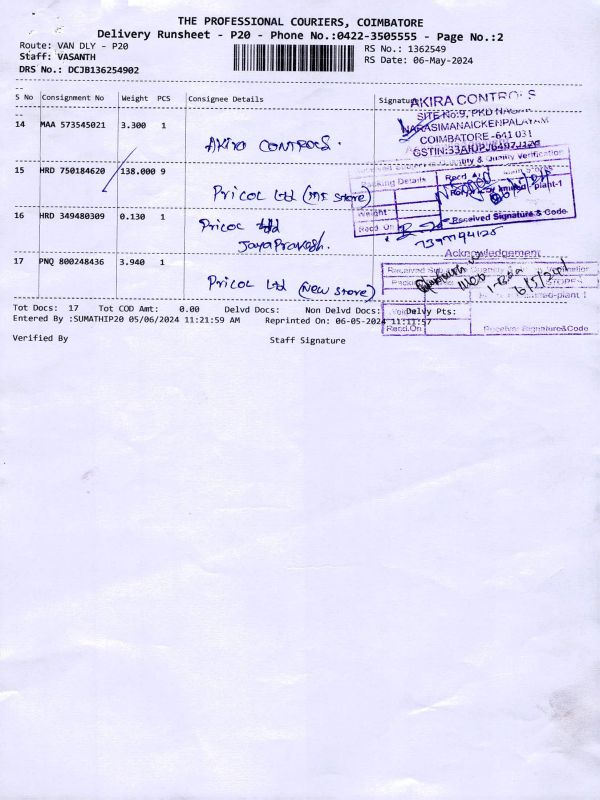 THE PROFESSIONAL COURIERS, COIMBATORE
Delivery Runsheet - P20 - Phone No.:0422-3505555 - Page No.:2
Route: VAN DLY - P20
RS No.: 1362549
Staff: VASANTH
RS Date: 06-May-2024
DRS No.: DCJB136254902
S No Consignment No Weight PCS Consignee Details Signature
14 MAA 573545021 3.300 1
Akira Controls.
AKIRA CONTROLS
SITE No:9, PKD NAGAR
NARASIMANAICKENPALAYAM
COIMBATORE - 641 031
15 HRD 750184620 138.000 9
Pricol Ltd (MF store)
Quantity & Quality Verification
Packing Details
Weight
Recd. On
plant-1
Received Signature & Code
16 HRD 349480309 0.130 1
Pricol Ltd
Jaya Prakash.
Acknowledgement
17 PNQ 800248436 3.940 1
Pricol Ltd (New store)
Recd.On
Receiver Signature&Code
Tot Docs: 17 Tot COD Amt: 0.00 Delvd Docs: Non Delvd Docs: Delvy Pts:
Entered By :SUMATHIP20 05/06/2024 11:21:59 AM Reprinted On: 06-05-2024 11:11:57
Verified By
Staff Signature